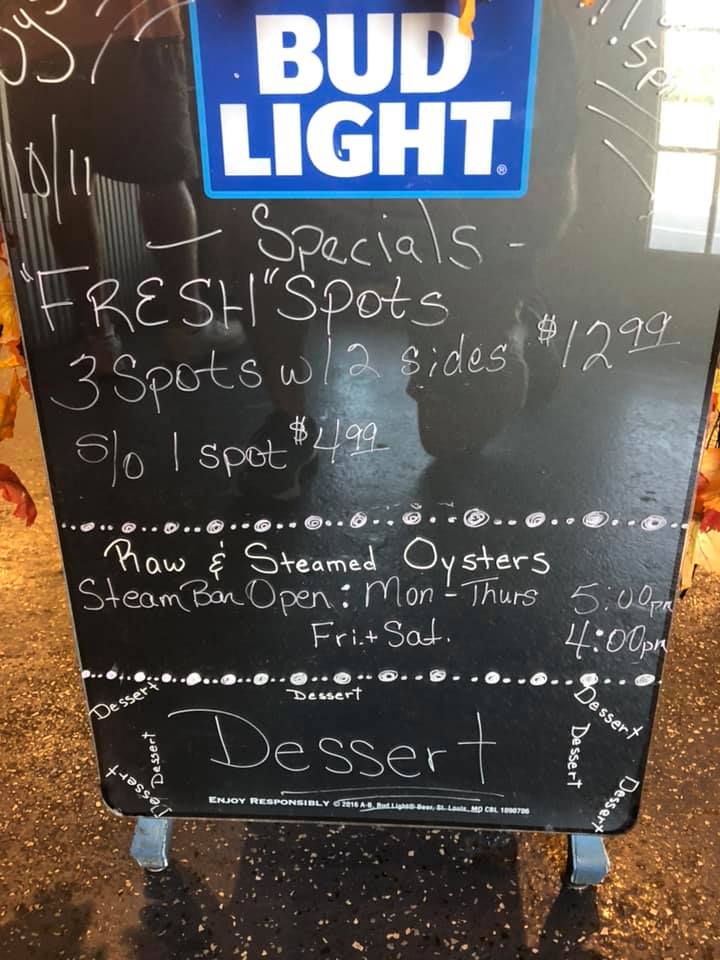 BUD
LIGHT®
10/11
- Specials -
"FRESH" Spots
3 Spots w/ 2 sides $12.99
S/o 1 spot $4.99
Raw & Steamed Oysters
Steam Bar Open: Mon - Thurs 5:00pm
Fri + Sat. 4:00pm
Dessert
Dessert
Dessert
Dessert
Dessert
Dessert
Dessert
Dessert
Dessert
ENJOY RESPONSIBLY © 2016 A-B, Bud Light® Beer, St. Louis, MO CBL 1090706